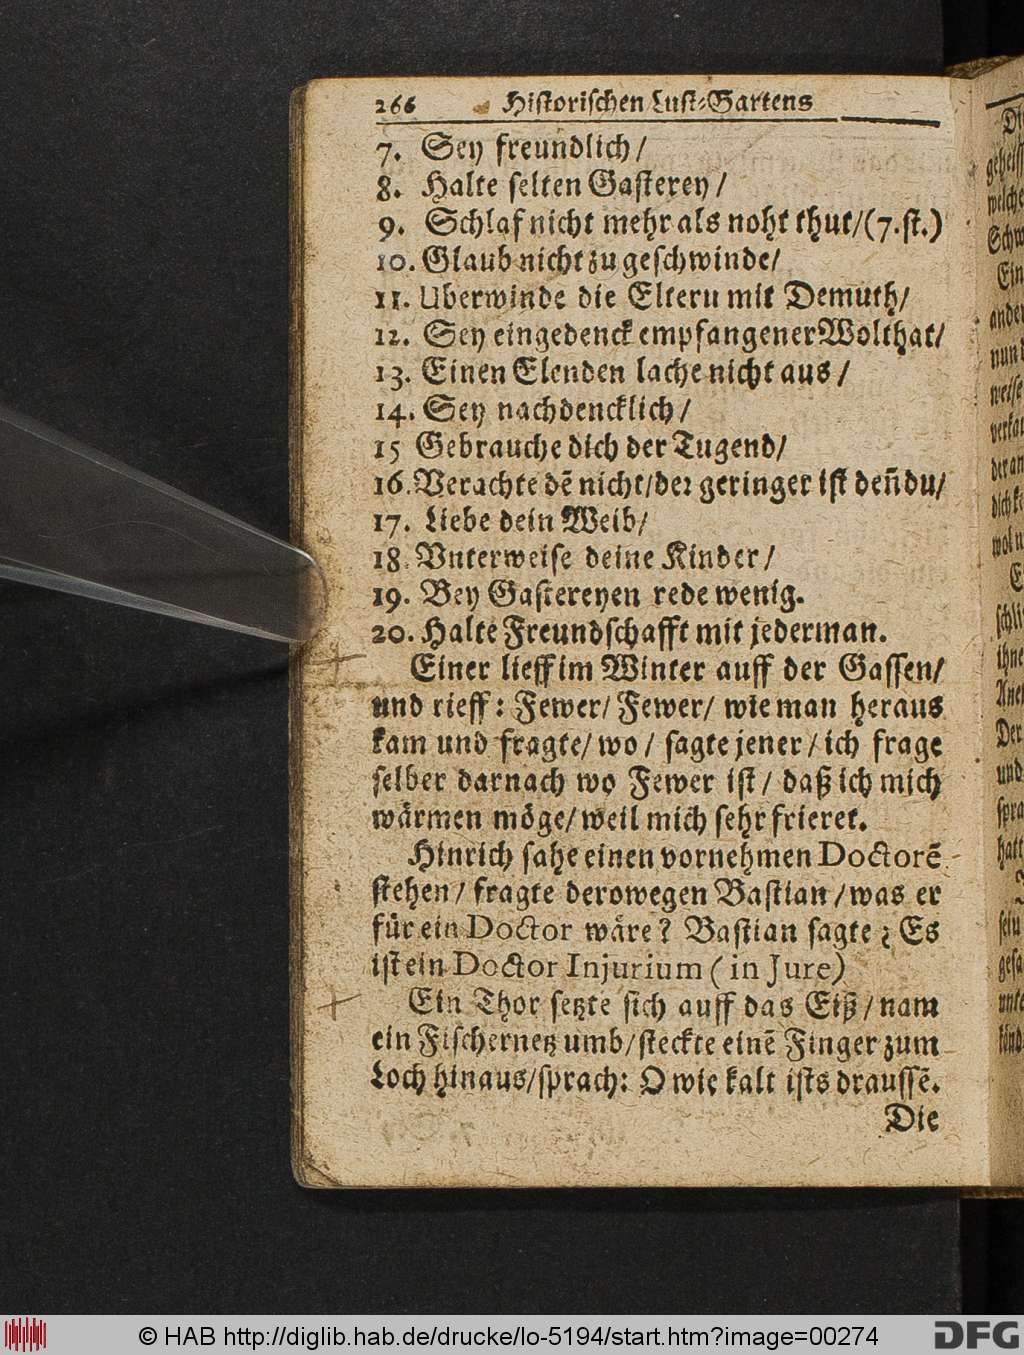 266 Historischen Lust-Gartens
7. Sey freundlich/
8. Halte selten Gasterey/
9. Schlaf nicht mehr als noht thut/(7.st.)
10. Glaub nicht zu geschwinde/
11. Uberwinde die Eltern mit Demuth/
12. Sey eingedenck empfangener Wolthat/
13. Einen Elenden lache nicht aus/
14. Sey nachdencklich/
15 Gebrauche dich der Tugend/
16. Verachte dē nicht/der geringer ist den̄ du/
17. Liebe dein Weib/
18. Vnterweise deine Kinder/
19. Bey Gastereyen rede wenig.
20. Halte Freundschafft mit jederman.
Einer lieff im Winter auff der Gassen/
und rieff: Fewer/ Fewer/ wie man heraus
kam und fragte/ wo/ sagte jener/ ich frage
selber darnach wo Fewer ist/ daß ich mich
wärmen möge/ weil mich sehr frieret.
Hinrich sahe einen vornehmen Doctorē
stehen/ fragte derowegen Bastian/ was er
für ein Doctor wäre? Bastian sagte ¿ Es
ist ein Doctor Injurium (in Jure)
Ein Thor setzte sich auff das Eiß/ nam
ein Fischernetz umb/ steckte einē Finger zum
Loch hinaus/ sprach: O wie kalt ists draussē.
Die
Di
geheiss
welche
Schw
Ein
ander
nun
weise
verkau
der an
dich
wol
schli
ihne
Der
und
spra
hatt
sein
gesa
unte
kind
© HAB http://diglib.hab.de/drucke/lo-5194/start.htm?image=00274
DFG